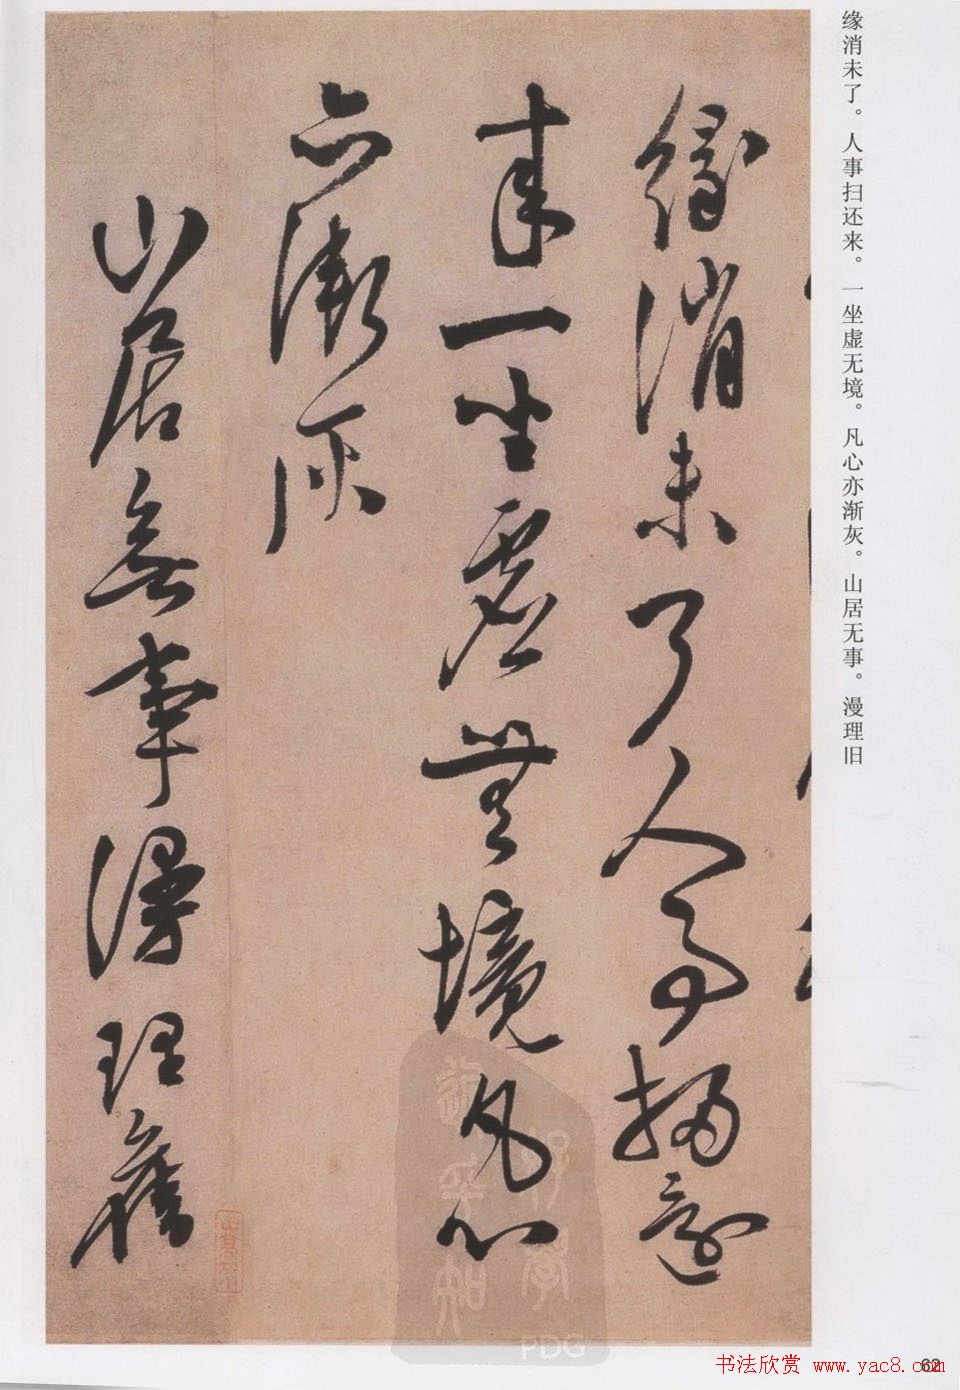 缘消未了。人事扫还来。一坐虚无境。凡心亦渐灰。山居无事。漫理旧
缘消未了人事掃還
来一坐虚無境凡心
亦漸灰
山居無事漫理舊
PDG
书法欣赏 www.yac8.com
62